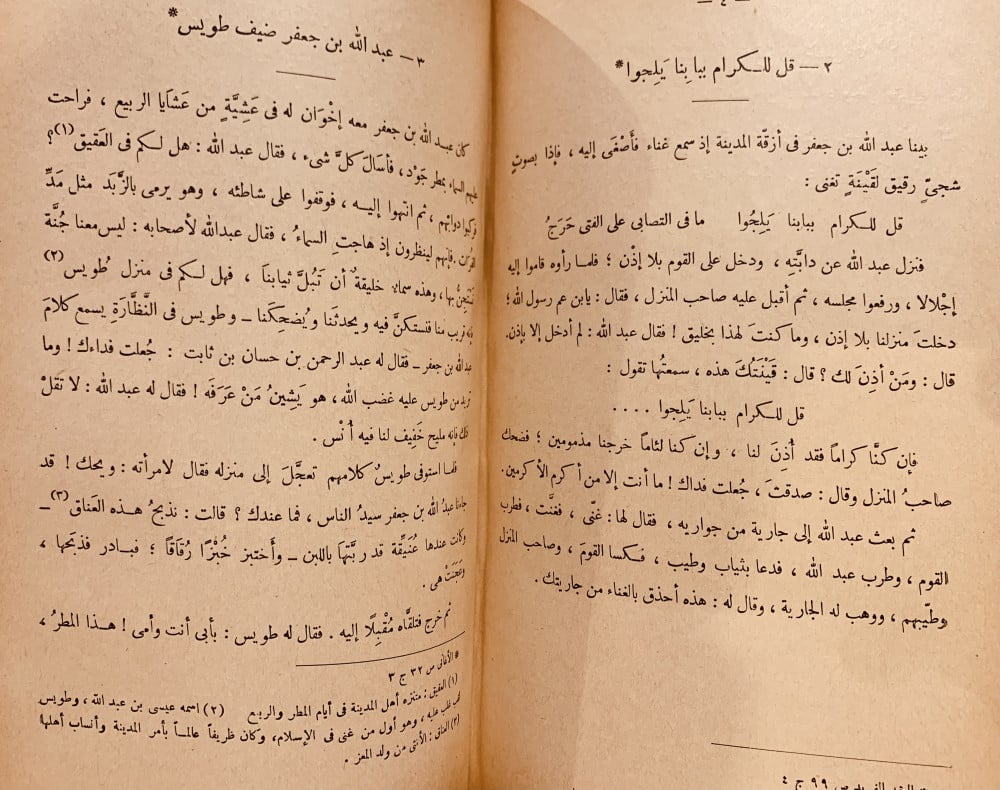 — ٤ —
٢ — قل للكرام ببابنا يَلِجوا*
بينا عبد الله بن جعفر فى أزقّة المدينة إذ سمع غناء فأصْغَى إليه ، فإذا بصوتٍ
شجىٍّ رقيق لقَيْنَةٍ تغنى :
قل للكرام ببابنا يَلِجُوا ما فى التصابى على الفتى حَرَجُ
فنزل عبد الله عن دابَّتِه ، ودخل على القوم بلا إذْن ؛ فلما رأوه قاموا إليه
إجْلالا ، ورفعوا مجلسه ، ثم أقبل عليه صاحب المنزل ، فقال : يابن عم رسول الله ؛
دخلتَ منزلنا بلا إذن ، وما كنتَ لهذا بخليق ! فقال عبد الله : لم أدخل إلا بإذن.
قال : ومَنْ أذِنَ لك ؟ قال : قَيْنَتُكَ هذه ، سمعتُها تقول :
قل للكرام ببابنا يَلِجوا ....
فإن كنَّا كراماً فقد أُذِنَ لنا ، وإن كنا لئاماً خرجنا مذمومين ؛ فضحك
صاحبُ المنزل وقال : صدقتَ ، جُعلت فداك ! ما أنت إلا من أكرم الأكرمين.
ثم بعث عبد الله إلى جارية من جواريه ، فقال لها : غنّى ، فغنَّت ، فطرب
القوم ، وطرب عبد الله ، فدعا بثياب وطيب ، فكسا القومَ ، وصاحب المنزل
وطيّبهم ، ووهب له الجارية ، وقال له : هذه أحذق بالغناء من جاريتك .
العقد الفريد ص ٩٩ ج ٤
٣ — عبد الله بن جعفر ضيف طويس*
كان عبد الله بن جعفر معه إخْوَان له فى عَشِيَّةٍ من عَشَايا الربيع ، فراحت
عليهم السماء بمطر جَوْد ، فأسَالَ كلَّ شىء ، فقال عبد الله : هل لكم فى العَقيق (١) ؟
فركبوا دوابَّهم ، ثم انتهوا إليه ، فوقفوا على شاطئه ، وهو يرمى بالزَّبَد مثل مَدِّ
الفرات . فإنهم لينظرون إذ هاجتِ السماءُ ، فقال عبدالله لأصحابه : ليس معنا جُنَّة
نَسْتَجِنُّ بها ، وهذه سماءٌ خليقةٌ أن تَبُلَّ ثيابنا ، فهل لكم فى منزل طُويس (٢)
فإنه قريب منا فنستكنَّ فيه ويحدثنا ويُضحِكَنا — وطويس فى النَّظَّارَةِ يسمع كلامَ
عبد الله بن جعفر — فقال له عبد الرحمن بن حسان بن ثابت : جُعلت فداءك ! وما
تريد من طويس عليه غضب الله ، هو يَشِينُ مَنْ عَرَفَه ! فقال له عبد الله : لا تقلْ
ذلك فإنه مليح خَفِيف لنا فيه أُنْس .
فلما استوفى طويسٌ كلامهم تعجَّلَ إلى منزله فقال لامرأته : ويحك ! قد
جاءنا عبدُ الله بن جعفر سيدُ الناس ، فما عندك ؟ قالت : نذبحُ هذه العَناق (٣) —
وكانت عندها عُنَيِّقة قد ربَّتها باللبن — وأَختبز خُبْزًا رُقَاقًا ؛ فبادر فذبحها ،
وعجَنَتْ هى .
ثم خرج فتلقَّاه مُقْبِلًا إليه . فقال له طويس : بأبى أنت وأمى ! هذا المطرُ ،
* الأغانى ص ٣٢ ج ٣
(١) العقيق : متنزه أهل المدينة فى أيام المطر والربع (٢) اسمه عيسى بن عبد الله ، وطويس
لقب غلب عليه ، وهو أول من غنى فى الإسلام، وكان ظريفاً عالماً بأمر المدينة وأنساب أهلها
(٣) العناق : الأنثى من ولد المعز .